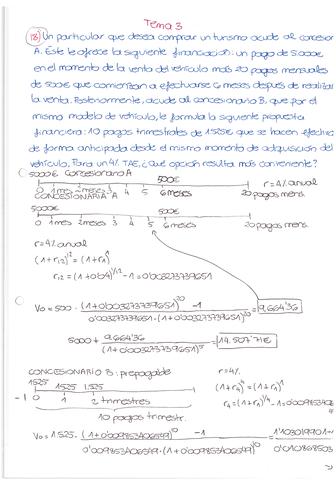 Tema 3
(18) Un particular que desea comprar un turismo acude al concesor
A. Éste le ofrece la siguiente financiación: un pago de 5.000€
en el momento de la venta del vehículo más 20 pagos mensuales
de 500€ que comienzan a efectuarse 6 meses después de realizar
la venta. Posteriormente, acude al concesionario B, que por el
mismo modelo de vehículo, le formula la siguiente propuesta
financiera: 10 pagos trimestrales de 1525€ que se hacen efectivo
de forma anticipada desde el mismo momento de adquisición del
vehículo. Para un 4% TAE, ¿Qué opción resulta más conveniente?
5000€ Concesionario A
500€
r=4% anual
0 1mes 2meses 3 4 5 6meses 20 pagos mens.
CONCESIONARIA A
5000€ 500€
0 1mes 2meses 3 4 5 6meses 20 pagos mens.
r=4% anual
(1+r12)^12 = (1+r1)^1
r12 = (1+0'04)^1/12 - 1 = 0'00327373965 1
V0 = 500 · (1+0'003273739651)^20 - 1 / 0'003273739651 · (1+0'003273739651)^20 = 9.664'36
5000 + 9.664'36 / (1+0'003273739651)^5 = 14.507'71€
CONCESIONARIO B: prepagable
r=4%
1525 1525 1.525
(1+r4)^4 = (1+r1)^1
-1 0 1 2 trimestres
r4 = (1+r1)^1/4 - 1 = 0'009853408
10 pagos trimestr.
V0 = 1525 · (1+0'009853406549)^10 - 1 / 0'009853406549 · (1+0'009853406549)^10